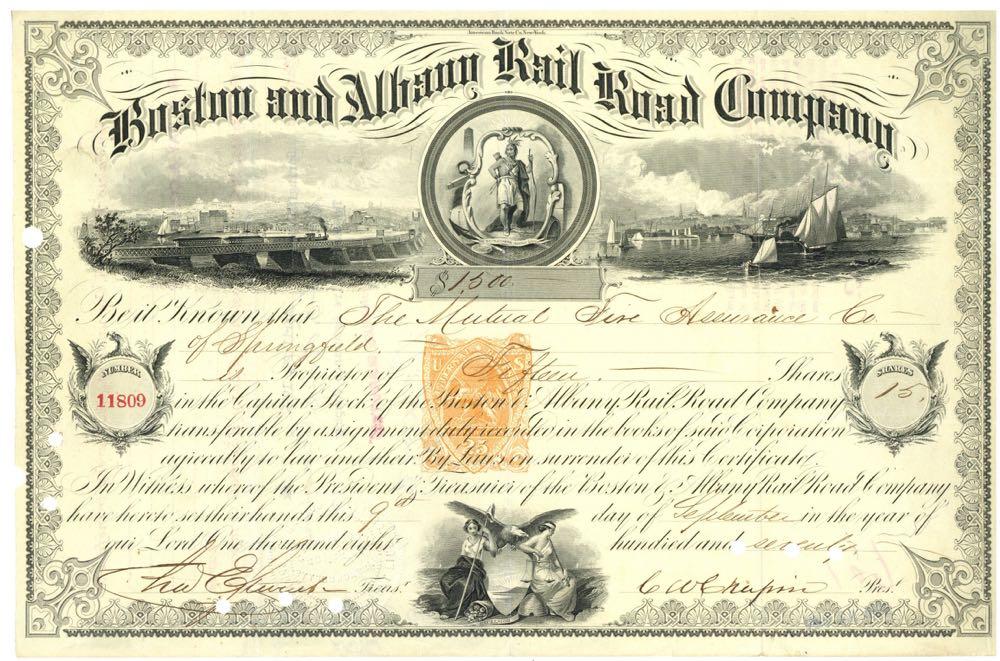 American Bank Note Co. New York.
Boston and Albany Rail Road Company
$1,500
Be it Known that The Mutual Fire Assurance Co
of Springfield.
is Proprietor of Fifteen Shares
NUMBER
11809
SHARES
15.
in the Capital Stock of the Boston & Albany Rail Road Company
transferable by assignment duly recorded in the books of said Corporation
agreeably to law and their By-Laws on surrender of this Certificate,
In Witness whereof the President & Treasurer of the Boston & Albany Rail Road Company
have hereto set their hands this 9th day of September in the year of
our Lord One thousand eight hundred and seventy.
Treasr.
C W Chapin Prest.
U S
25